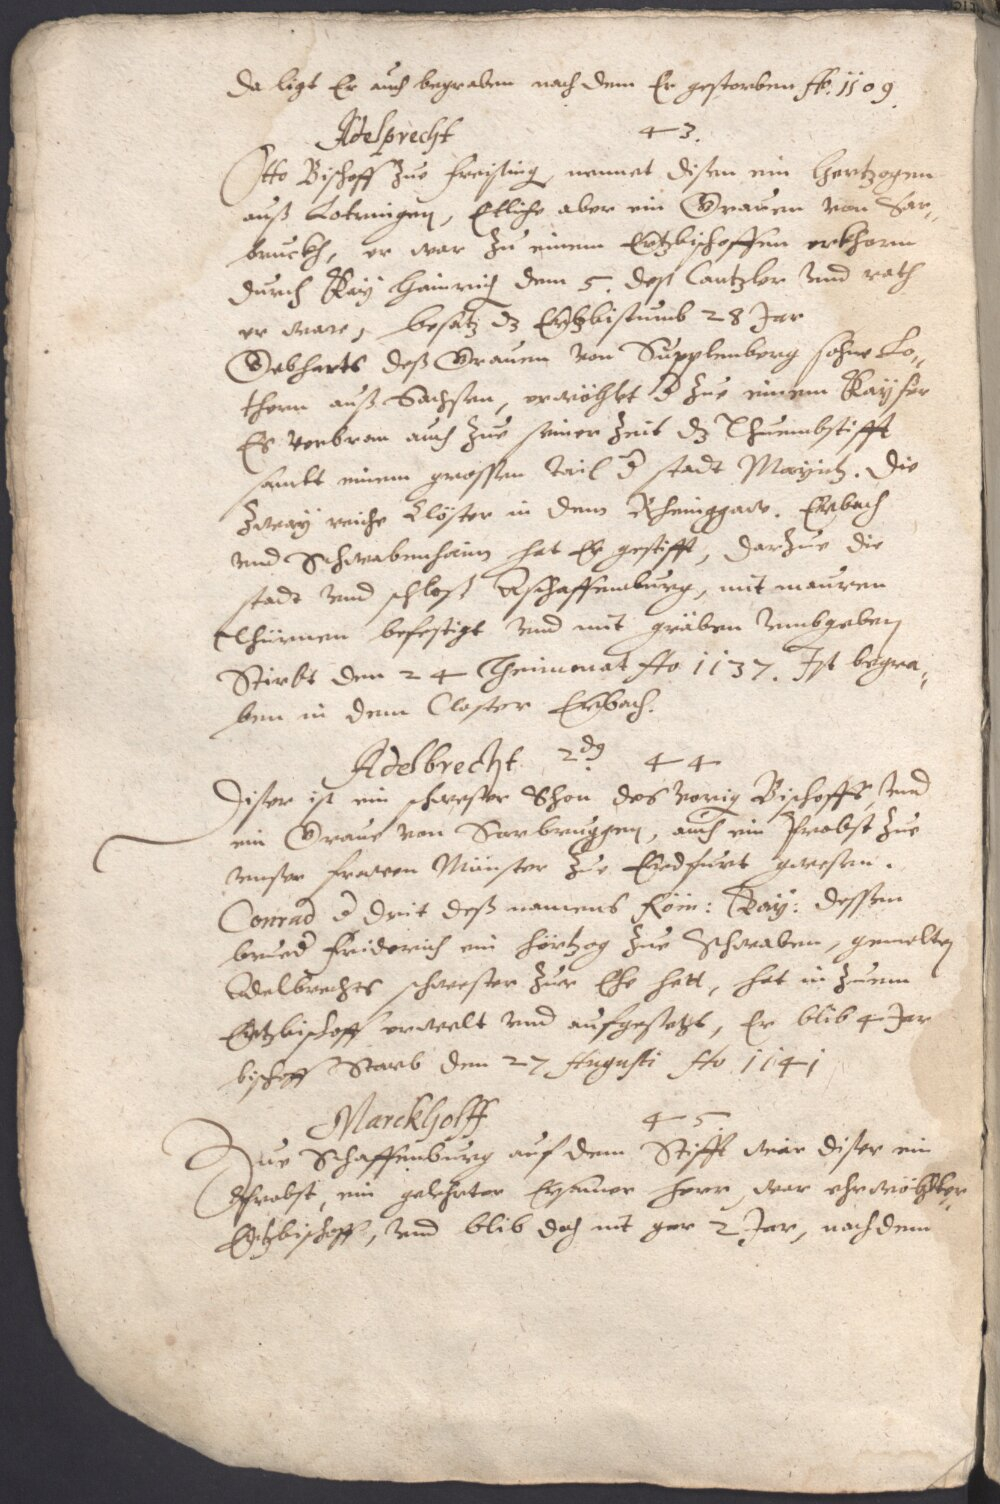 da ligt Er auch begraben nach dem Er gestorben Ao. 1109.
Adelprecht 43.
Otto Bischoff zue freising, nennet disen ein hertzogen
auß Lotringen, Etliche aber ein Grauen von Sar„
bruckh, er war zu einem Ertzbischoffen erkhorn
durch Kay hainrich dem 5. deß Cantzler vnd rath
er ware, besaß dz Ertzbistumb 28 Jar
Gebharts deß Grauen von Supplenberg sohne Lo„
thern auß Sachsen, erwöhlet d zue einem Kayser
Es verbran auch zue seiner zeit dz Thuembstifft
sambt einem grossen tail d stadt Mayntz. Die
zway reiche Clöster in dem Rheinggaw. Erbach
vnd Schwabenhaim hat Er gestifft, darzue die
stadt vnd schloß Aschaffenburg, mit mauren
Thürnen befestigt vnd mit gräben vmbgeben
Stirbt den 24 Heimonat Ao 1137. Ist begra„
ben in dem Closter Erbach.
Adelbrecht 2dg 44
Diser ist ein schwester Shon des vorig Bischoffs, vnd
ein Graue von Sarbruggen, auch ein Probst zue
vnser frawen Münster zue Erdfurt gwesen.
Conrad d drit deß namens Röm: Kay: dessen
brued Friderich ein hörtzog zue Schwaben, gemelten
Adelbrechts schwester zur Ehe hett, hat in zuem
Ertzbischoff erwelt vnd aufgesetzt, Er blib 4 Jar
bischoff Starb den 27 Augusti Ao 1141
Marckholff 45
Zue Schaffenburg auf dem Stifft war diser ein
Probst, ein gelehrter herr, war erwöhlter
Ertzbischoff, vnd blib doch nit gar 2 Jar, nachdem